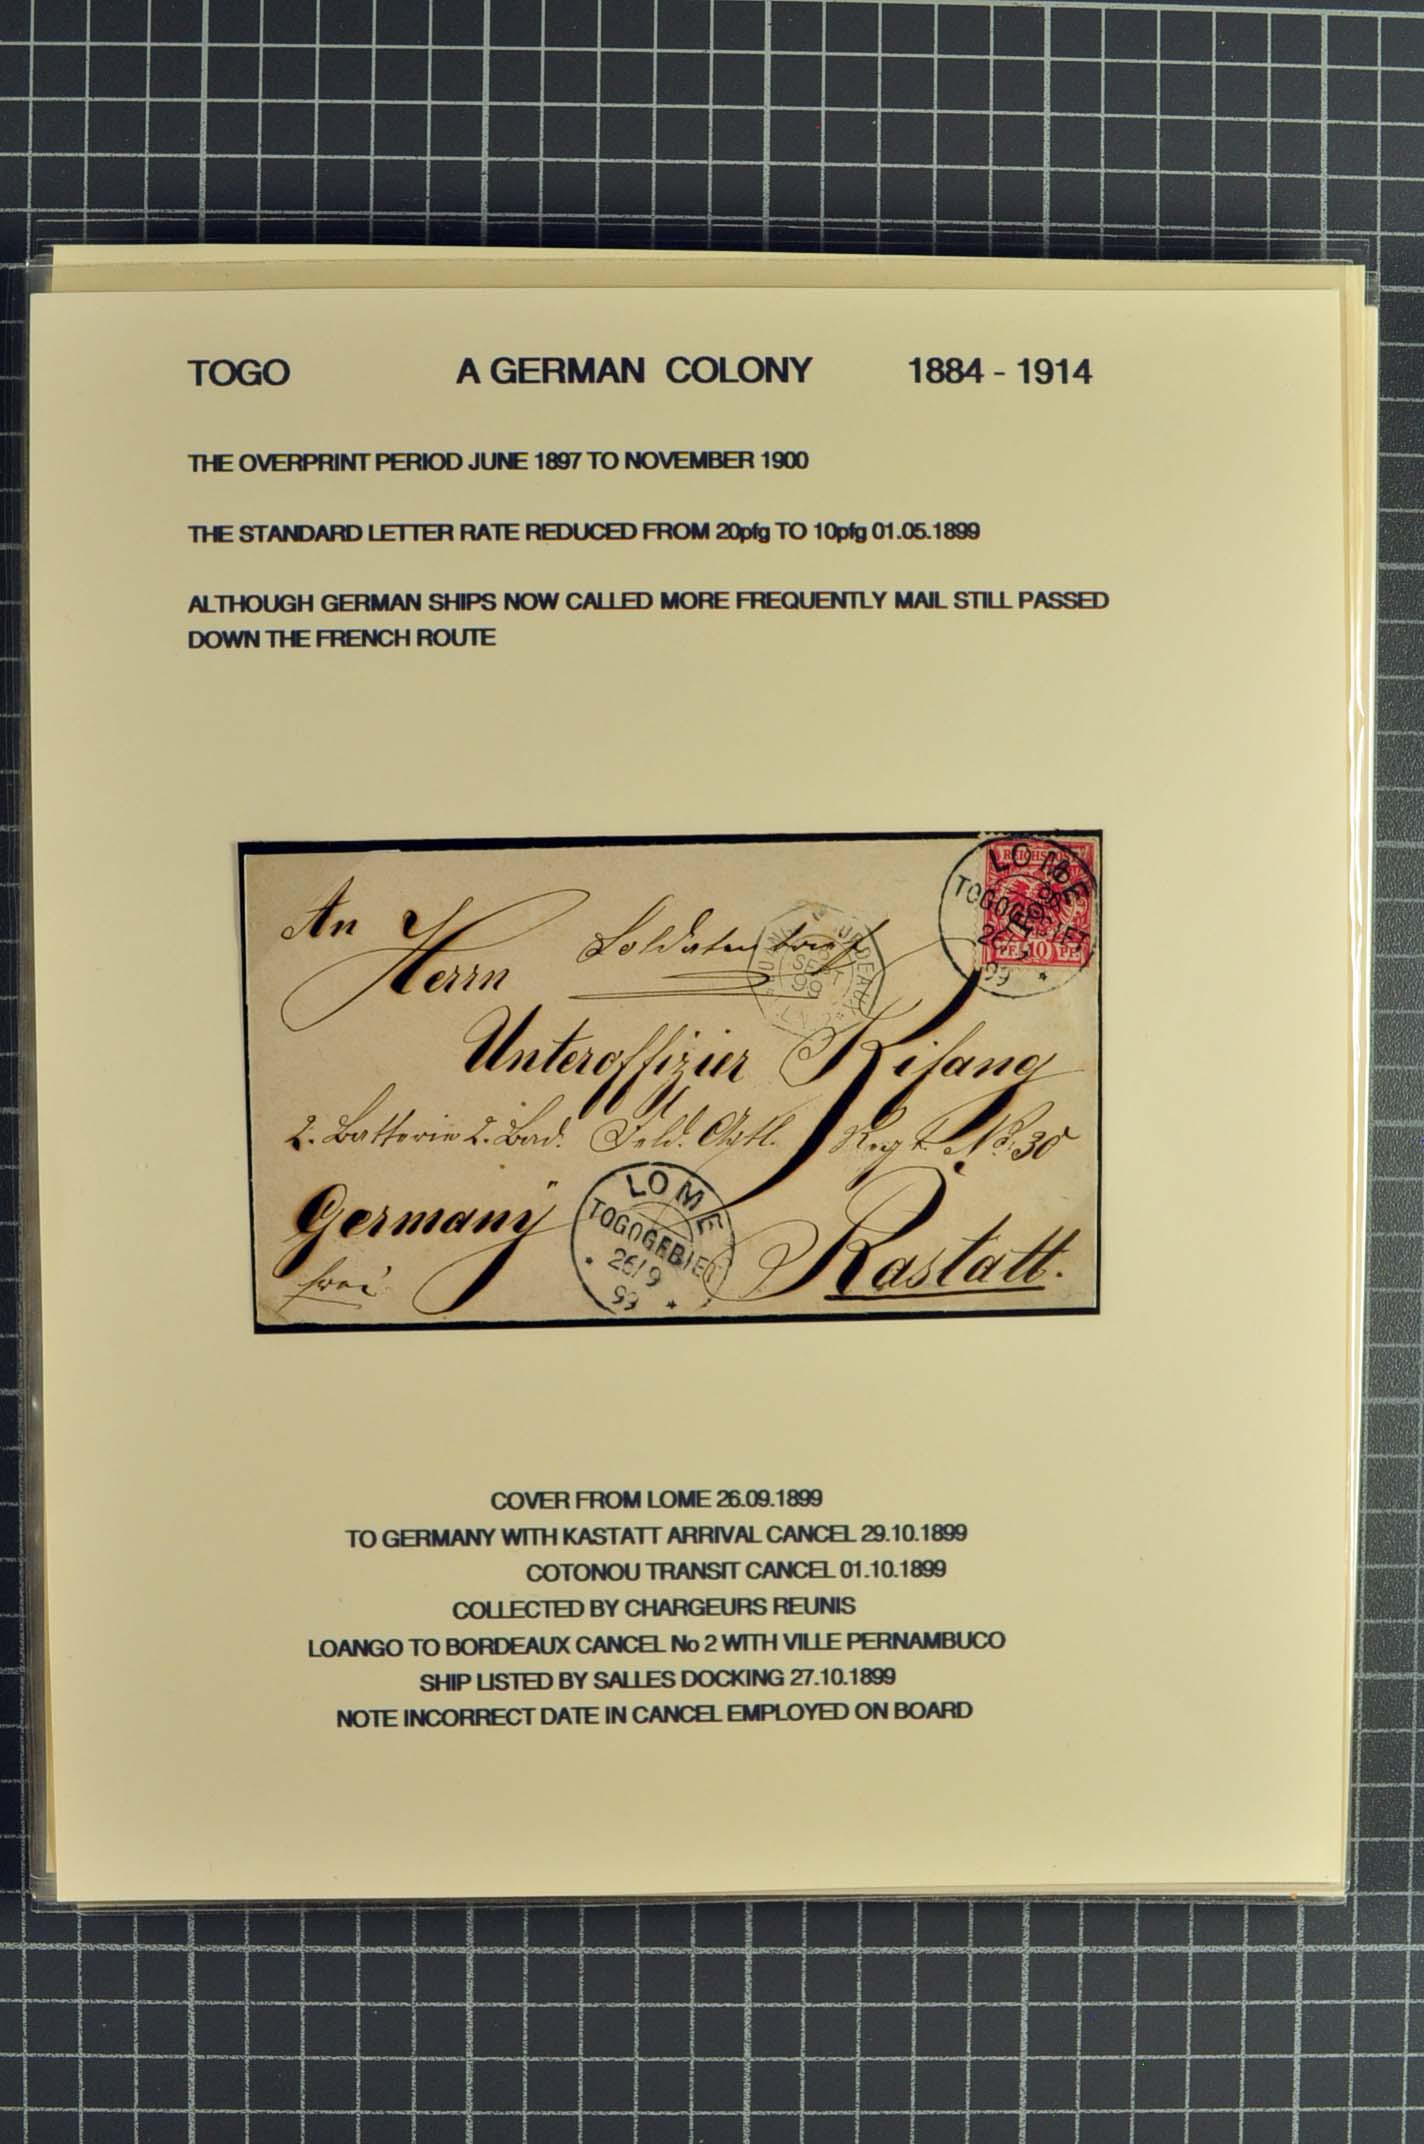 TOGO A GERMAN COLONY 1884 - 1914
THE OVERPRINT PERIOD JUNE 1897 TO NOVEMBER 1900
THE STANDARD LETTER RATE REDUCED FROM 20pfg TO 10pfg 01.05.1899
ALTHOUGH GERMAN SHIPS NOW CALLED MORE FREQUENTLY MAIL STILL PASSED
DOWN THE FRENCH ROUTE
REICHSPOST
LOME
TOGOGEBIET
26/9
99
PF. 10 PF.
An
Herrn
Soldatenbrief
SEPT
99
Unteroffizier Kifang
2. Batterie 2. Bad. Feld. Artl. Regt. No. 30
Germany
frei
LOME
TOGOGEBIET
26/9
99
Rastatt.
COVER FROM LOME 26.09.1899
TO GERMANY WITH KASTATT ARRIVAL CANCEL 29.10.1899
COTONOU TRANSIT CANCEL 01.10.1899
COLLECTED BY CHARGEURS REUNIS
LOANGO TO BORDEAUX CANCEL No 2 WITH VILLE PERNAMBUCO
SHIP LISTED BY SALLES DOCKING 27.10.1899
NOTE INCORRECT DATE IN CANCEL EMPLOYED ON BOARD